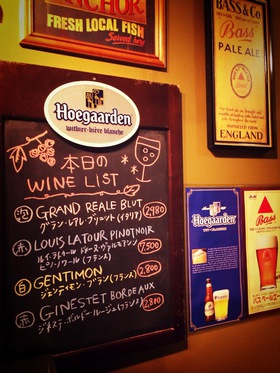 ANCHOR
FRESH LOCAL FISH
Served here
BASS & Co
Bass
PALE ALE
IMPORTED FROM
ENGLAND
Hoegaarden
witbier-bière blanche
本日の
WINE LIST
泡 GRAND REALE BLUT
グラン・レアレ・ブリュット(イタリア) 2,980
赤 LOUIS LATOUR PINOTNOIR
ルイ・ラトゥール
ピノ・ノワール(フランス) 7,500
白 GENTIMON
ジェンティモン・ブラン(フランス) 2,800
赤 GINESTET BORDEAUX
ジネステ・ボルドー・ルージュ(フランス) 2,800
Hoegaarden
Bass